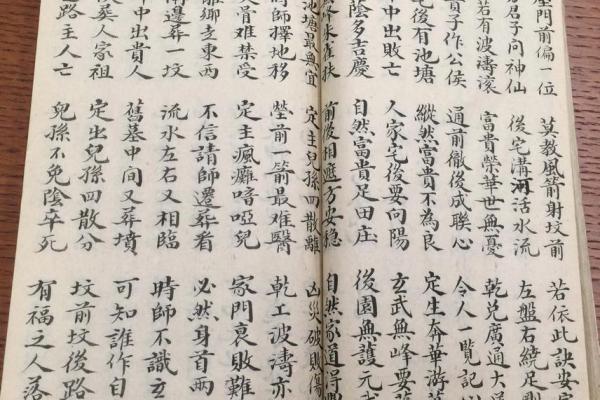 門前偏一位 莫教風箭射坟前 若依此訣安
君子問神仙 後宅溝河活水流 左盤右繞足
若有波濤滚 富貴榮華世無憂 乾兌廣通大
貴子作公侯 通前徹後成聯心 令人一覽記以
宅後有池塘 縱然富貴不為良 定生奔華游
中出敗亡 人家宅後要向陽 玄武無峰要
陰多吉慶 自然富貴足田庄 後園無護元
朱雀扶 前後相遮方安稳 自然家道得
池塘最無宜 定主兒孫四散離 凶災破敗傷
時師擇地移 塋前一箭最难醫 乾工波濤亦
骨难禁受 定主瘋癱喑啞兒 家門衰敗難
離鄉走東西 不信請師遷葬看 必然身首兩
兩邊葬一坟 流水左右又相臨 時師不識立
中出貴人 舊墓中間又葬墳 可知誰作自
葬人家祖 定出兒孫四散分 坟前坟後路
路主人亡 兒孫不免陰卒死 有福之人落